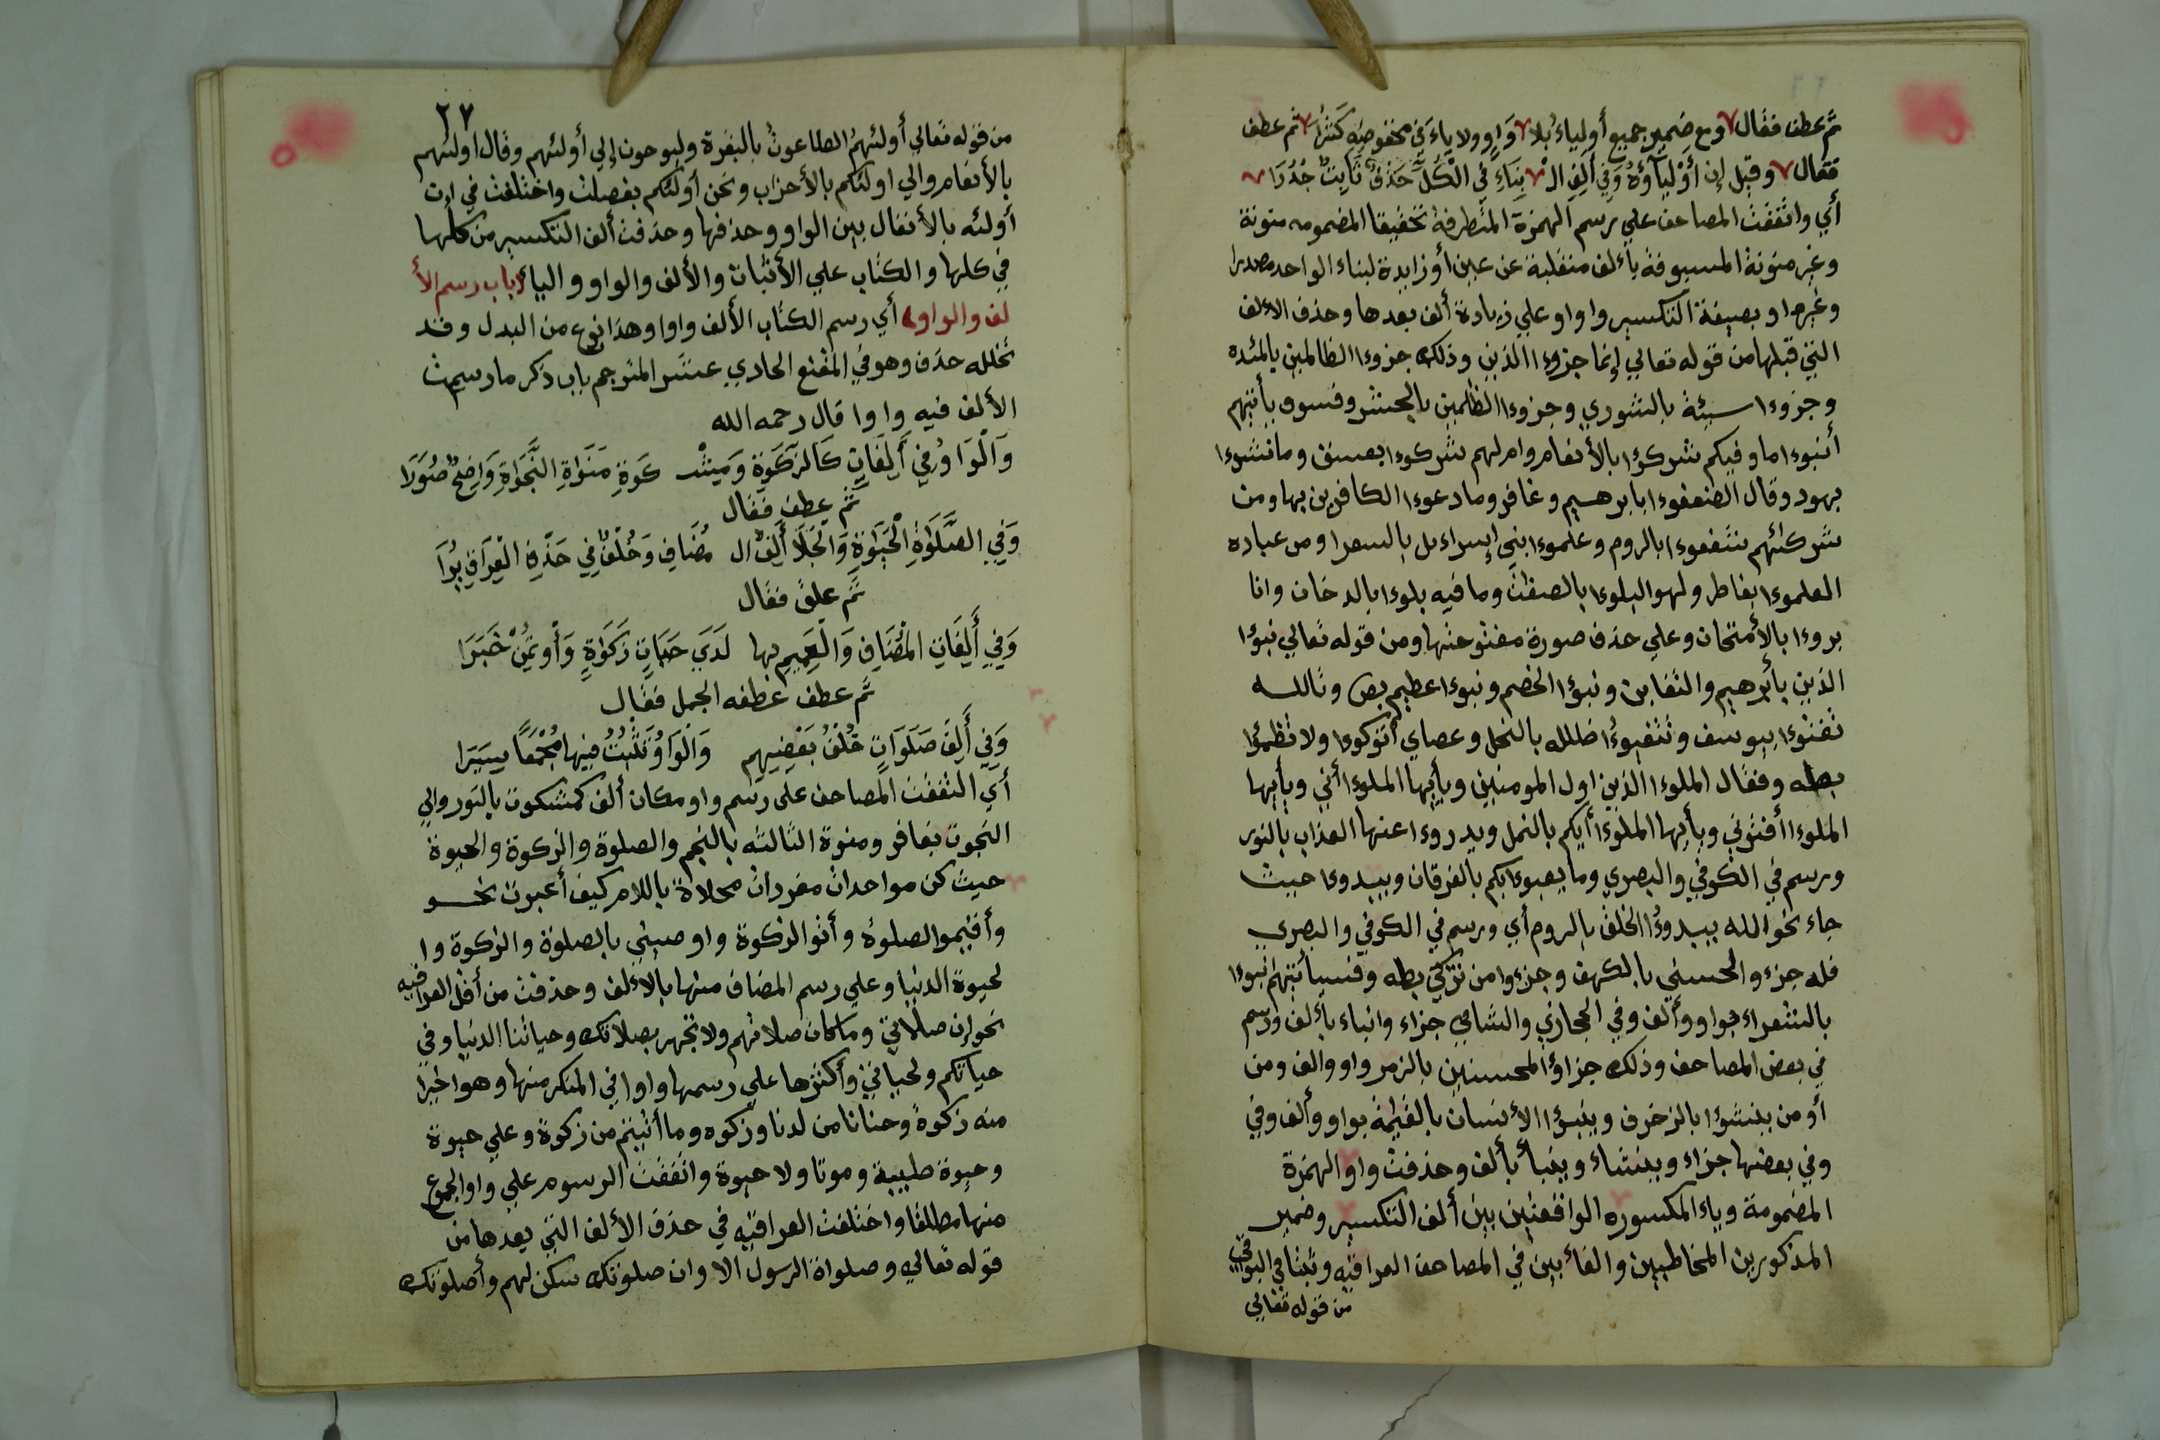 ثم عطف فقال ومع ضمير جميع أولياءُ بلا وَاوٍ ولا ياءَ في مخفوضِهِ كَثُرَا ثم عطف
فقال وقيل إن أَوْلِيَآؤُهُ وَفي أَلِفِ الْ بِنَاءِ فِي الْكُلِّ حَذفٌ ثَابِتٌ جُدُرَا
أي واتفقت المصاحف علي رسم الهمزة المتطرفة تحقيقا المضمومه منونة
وغير منونة المسبوقة بألف منقلبة عن عين أو زايدة لبناء الواحد مصدرا
وغيره او بصيغة التكسير واوا وعلي زيادة ألف بعدها وحذف الألف
التي قبلها من قوله تعالي إنما جزوء الذين وذلك جزوء الظالمين بالمئده
وجزوءا سيئة بالشوري وجزوءا الظلمين بالحشر وفسوف يأتيهم
أنبوءا ما وفيكم شركؤا بالأنعام وام لهم شركوءا بعسق وما نشوءا
بهود وقال الضعفوءا بابرهيم وغافر وما دعوءا الكافرين بها ومن
شركئهم شفعوءا بالروم وعلموءا بني إسراءيل بالشعرا ومن عباده
العلموءا بفاطر ولهو البلوءا بالصفت وما فيه بلوءا بالدخان وانا
بروءا بالأمتحان وعلي حذف صورة مفتوحتها ومن قوله تعالي نبؤا
الذين بأبرهيم والتغابن ونبؤا الخصم ونبوءا عظيم بص وتالله
تفتؤا بيوسف وتتفيوءُا ظلله بالنحل وعصاي أتوكوءا ولا تظمؤا
بطه وفقال الملوءا الذين اول المومنين ويأيها الملوءا أني ويأيها
الملوءا أفتوني ويأيها الملوءا أيكم بالنمل ويدروءا عنها العذاب بالنور
ورسم في الكوفي والبصري وما يعبوءا بكم بالفرقان ويبدوءا حيث
جاء نحو الله يبدوءُا الخلق بالروم أي ورسم في الكوفي والبصري
فله جزء والحسني بالكهف وجزءوا من تزكي بطه وفسيأتيهم أنبوءا
بالشعراء بواو وألف وفي الحجازي والشامي جزاء وانباء بألف ورسم
في بعض المصاحف وذلك جزاؤ المحسنين بالزمر واو والف ومن
أو من ينشؤا بالزخرف وينبؤا الأنسان بالقيمة بواو وألف وفي
وفي بعضها جزاء وينشاء وينبأ بألف وحذفت واو الهمزة
المضمومة وياء المكسوره الواقعتين بين ألف التكسير وضمير
المذكورين المخاطبين والغائبين في المصاحف العراقيه وثبتا في البواقي
من قوله تعالي
٢٧
من قوله تعالي أولئهمُ الطاعونُ بالبقرة وليوحون إلي أولئهم وقال اولئهم
بالأنعام والي اولئكم بالأحزاب ونحن أولئكم بفصلت واختلفت في ان
أولئه بالأنفال بين الواو وحذفها وحذفت ألف التكسير من كلها
في كلها والكتاب علي الأثبات والألف والواو والياء باب رسم الأ
لف والواوه أي رسم الكتاب الألف واوا وهذا نوع من البدل وقد
تخلله حذف وهو في المقنع الحادي عشر المترجم باب ذكر ما رسمت
الألف فيه واوا قال رحمه الله
وَالْوَاوُ فِي أَلِفَاتٍ كَالزَّكَوةِ وَمِشْ كَوةِ مَنَوَاةِ النَّجَوَاةِ وَاضِحٌ صُوَرَا
ثم عطف فقال
وَفِي الصَّلَوٰةِ الْحَيَوٰةِ وَانْجَلَا أَلِفُ ال مُضَافِ وَخُلْفٌ فِي حَذْفِ الْعِرَاقِ يُرَا
ثم علق فقال
وَفِي أَلِفَاتِ الْمُضَافِ وَالْعَمِيمِ بها لَدَي حَيَاتٍ زَكَوٰةٍ وَأْوٍ مَنْ خَبَرَا
ثم عطف عطفه الجمل فقال
وَفِي أَلِفِ صَلَوَاتٍ خُلْفُ بَعْضِهِمِ وَالْوَاوُ تَثْبُتُ فِيهَا مُجْمَعًا سِيَرَا
أي اتفقت المصاحف علي رسم واو مكان ألف كمشكوة بالنور والي
النجوة بغافر ومنوة الثالثه بالنجم والصلوة والزكوة والحيوة
حيث كن مواحدات مفردات محلاة باللام كيف أعبرت نحو
وأقيموا الصلوة وأتوا الزكوة واوصيني بالصلوة والزكوة وا
لحيوة الدنيا وعلي رسم المضاف منها بالألف وحذفت من أقل العراقيه
نحو إن صلاتي وما كان صلاتهم ولا تجهر بصلاتك وحياتنا الدنيا وفي
حياتكم ولحياتي وأكثرها علي رسمها واوا في المنكر منها وهو اخيرا
منه زكوة وحنانا من لدنا وزكوه وما أتيتم من زكوة وعلي حيوة
وحيوة طيبة وموتا ولا حيوة واتفقت الرسوم علي واو الجموع
منها مطلقا واختلفت العراقيه في حذف الألف التي بعدها من
قوله تعالي وصلواة الرسول الا وان صلوتك سكن لهم وأصلوتك